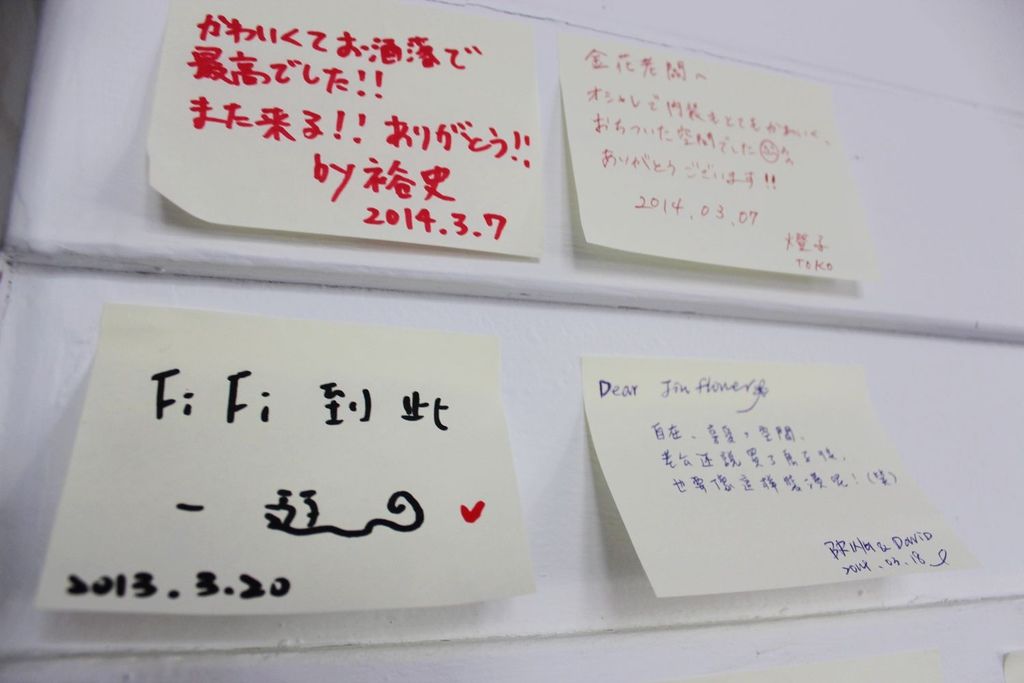 かわいくてお洒落で
最高でした!!
また来る!! ありがとう!!
by 裕史
2014.3.7
金花老闆へ
オシャレで内装もとてもかわいく、
おちついた空間でした
ありがとうございます!!
2014.03.07
燈子
TOKO
FiFi 到此
一遊
2013.3.20
Dear Jin flower
自在、享受、空間,
老公还説買了房子後,
也要像這樣裝潢呢!(笑)
& David
2014.03.18